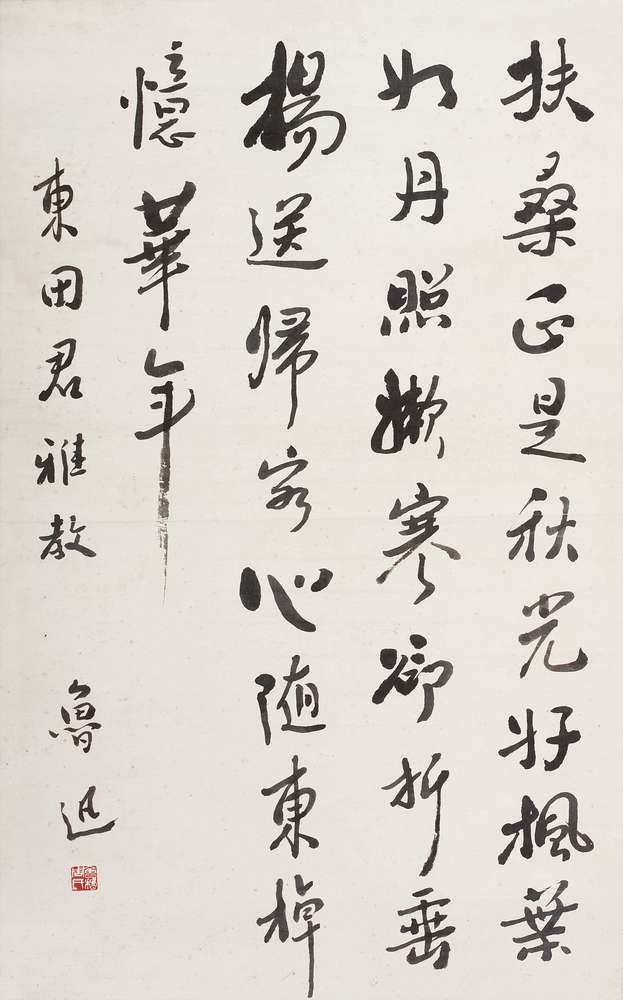 扶桑正是秋光好楓葉
如丹照嫩寒卻折垂
楊送歸客心随東棹
憶華年
東田君雅教
魯迅